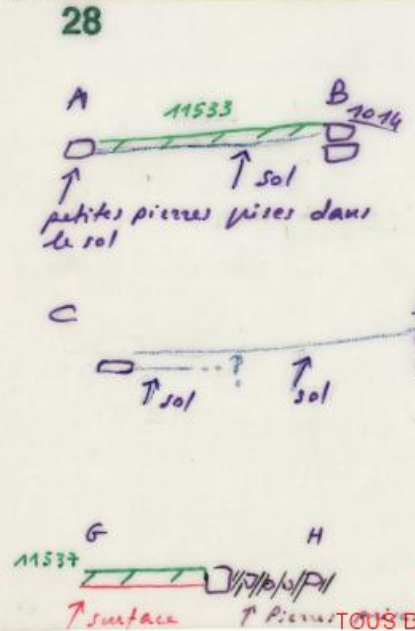 28
A 11533 B 1014
sol
petites pierres prises dans
le sol
C
?
sol sol
G H
11537
surface Pierres
TOUS D